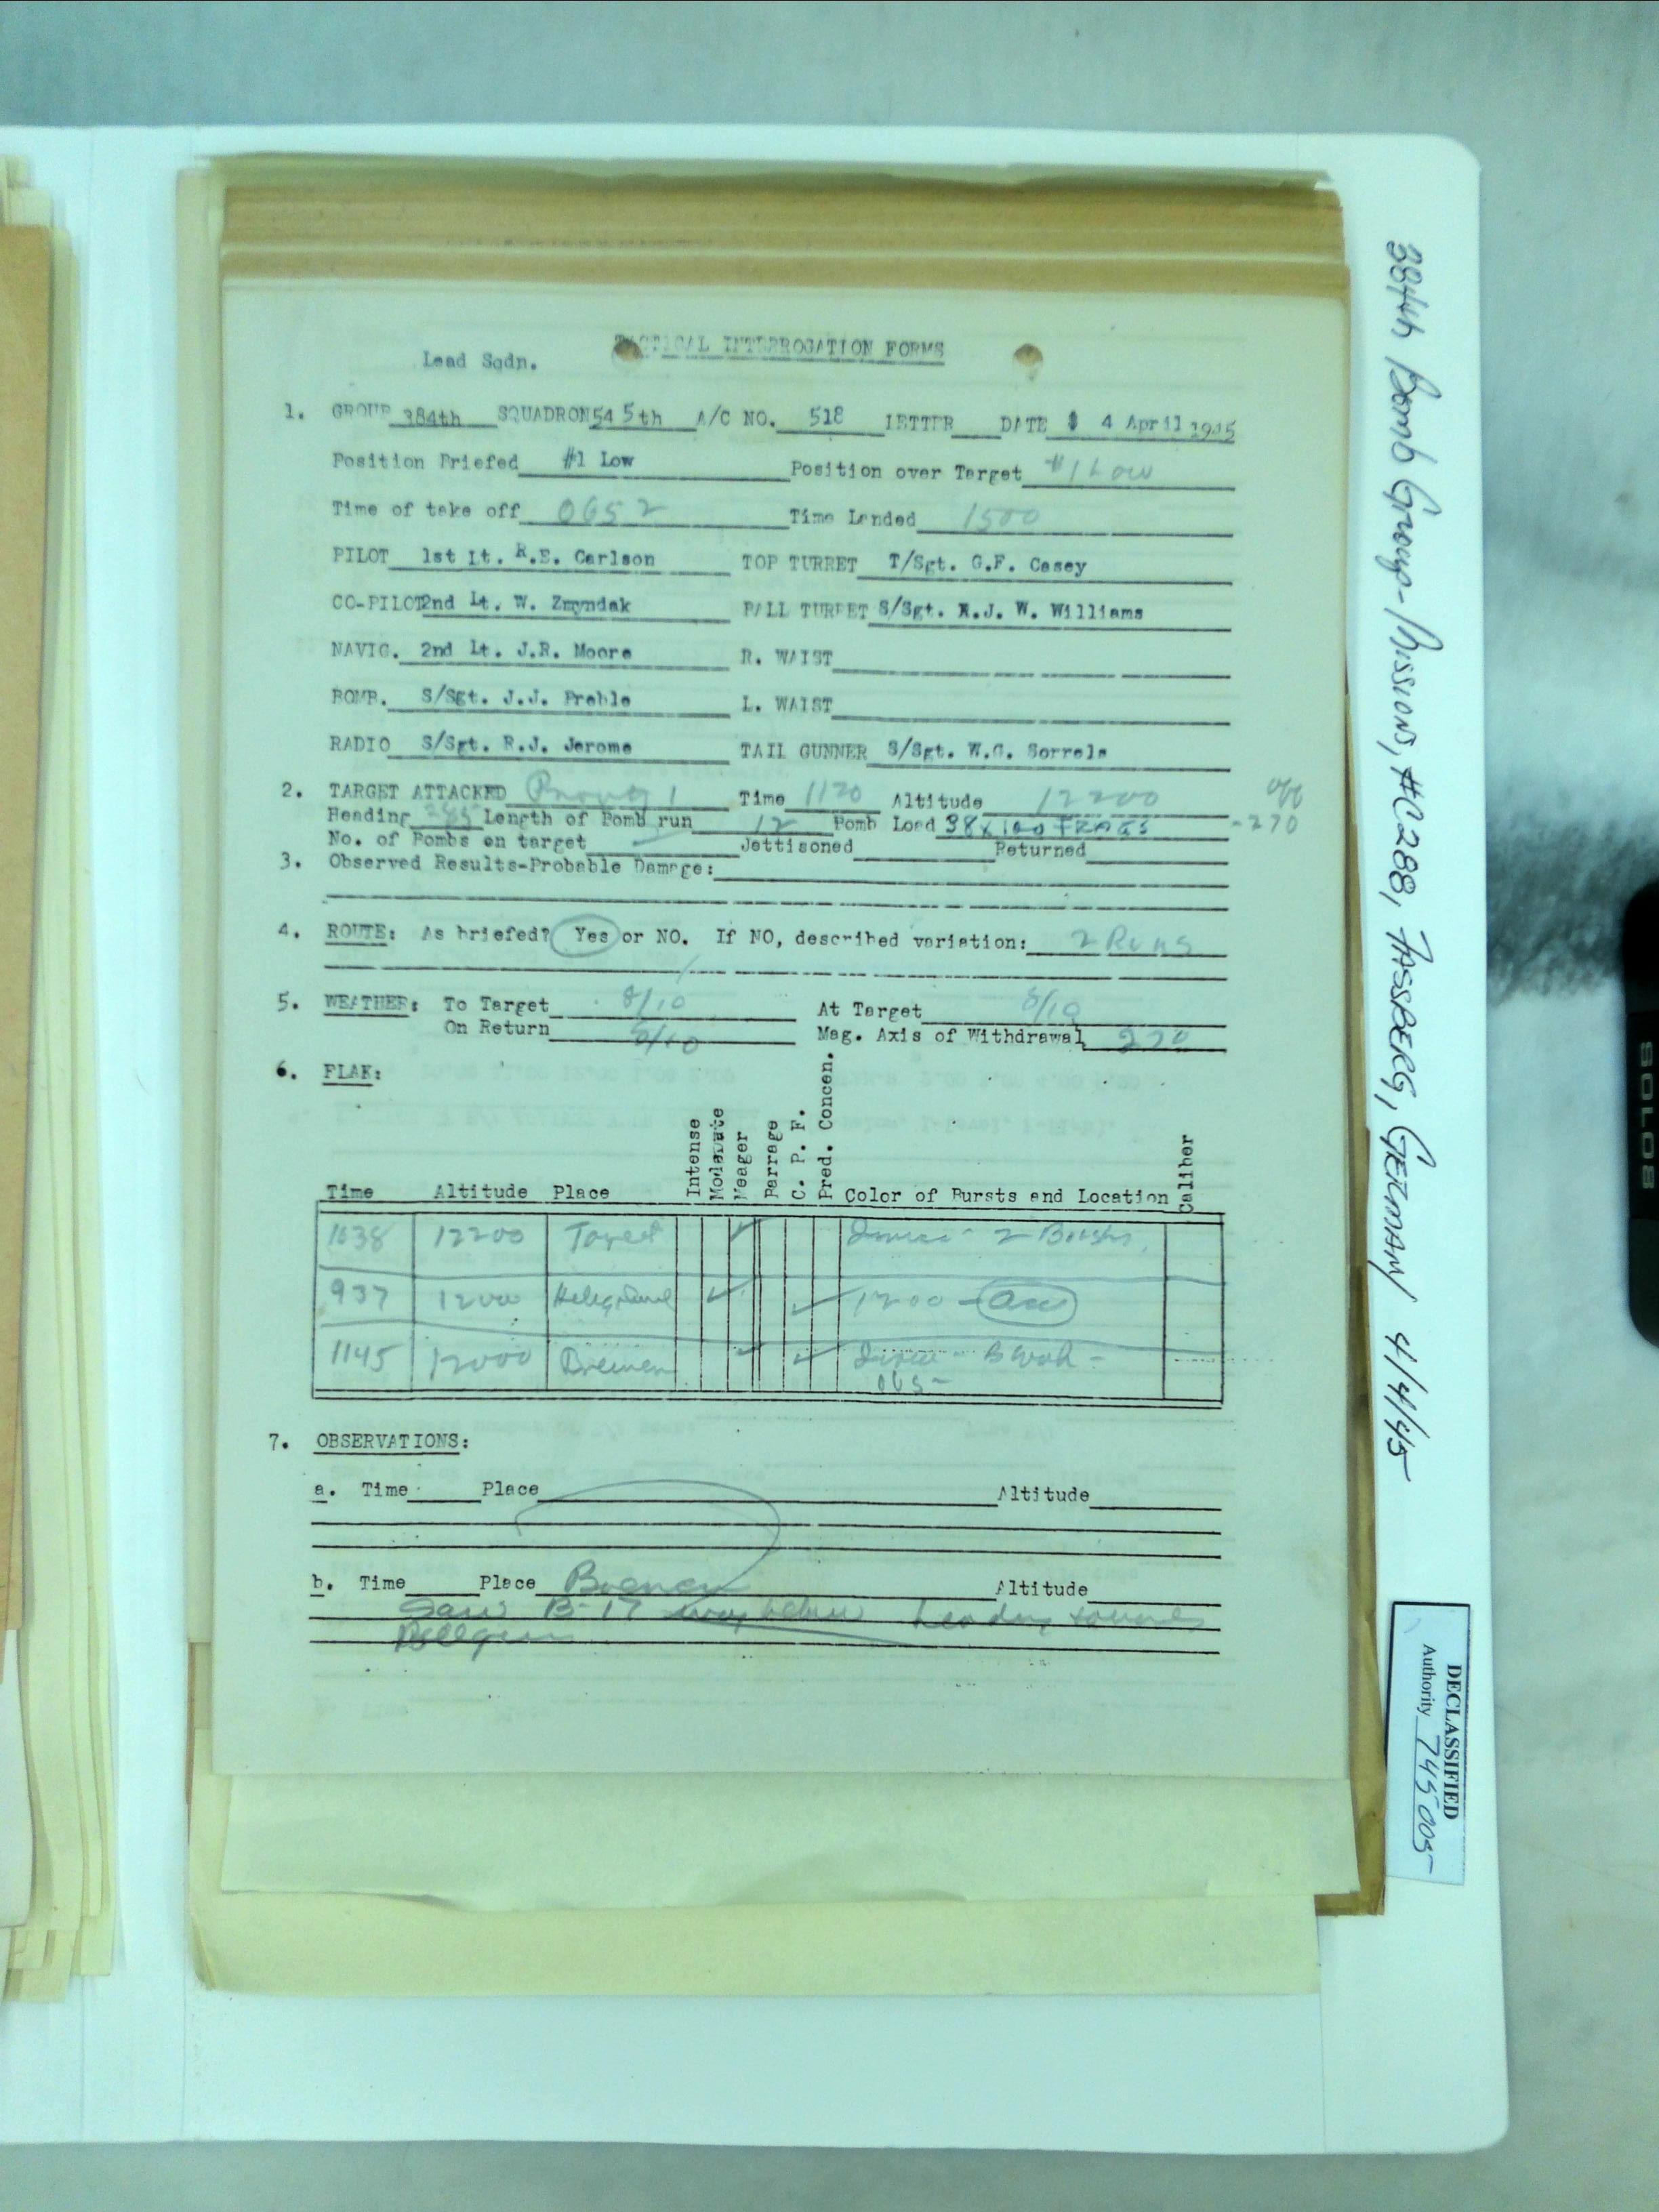 TACTICAL INTERROGATION FORMS
Lead Sqdn.
1. GROUP 384th SQUADRON 545th A/C NO. 518 LETTER DATE 4 April 1945
Position Briefed #1 Low Position over Target #1 Low
Time of take off 0652 Time Landed 1500
PILOT 1st Lt. R.E. Carlson TOP TURRET T/Sgt. G.F. Casey
CO-PILOT 2nd Lt. W. Zmyndak BALL TURRET S/Sgt. R.J. W. Williams
NAVIG. 2nd Lt. J.R. Moore R. WAIST
BOMB. S/Sgt. J.J. Preble L. WAIST
RADIO S/Sgt. R.J. Jerome TAIL GUNNER S/Sgt. W.G. Sorrels
2. TARGET ATTACKED Time 1120 Altitude 12200 off
Heading Length of Bomb run 12 Bomb Load 38x100 FRAGS -270
No. of Bombs on target Jettisoned Returned
3. Observed Results-Probable Damage:
4. ROUTE: As briefed? Yes or NO. If NO, described variation: 2 Runs
5. WEATHER: To Target 8/10 At Target 8/10
On Return Mag. Axis of Withdrawal 270
6. FLAK:
Time Altitude Place Intense Moderate Meager Barrage C. P. F. Pred. Concen. Color of Bursts and Location Caliber
1038 12200 Target ✓ 2 Bursts
937 12000 ✓ ✓ 1200
1145 12000 Bremen ✓ ✓
7. OBSERVATIONS:
a. Time Place Altitude
b. Time Place Bremen Altitude
Saw B-17 way below heading towards
384th Bomb Group-Mission, #C288, FASSBERG, GERMANY 4/4/45
DECLASSIFIED
Authority 745005
SOLO8